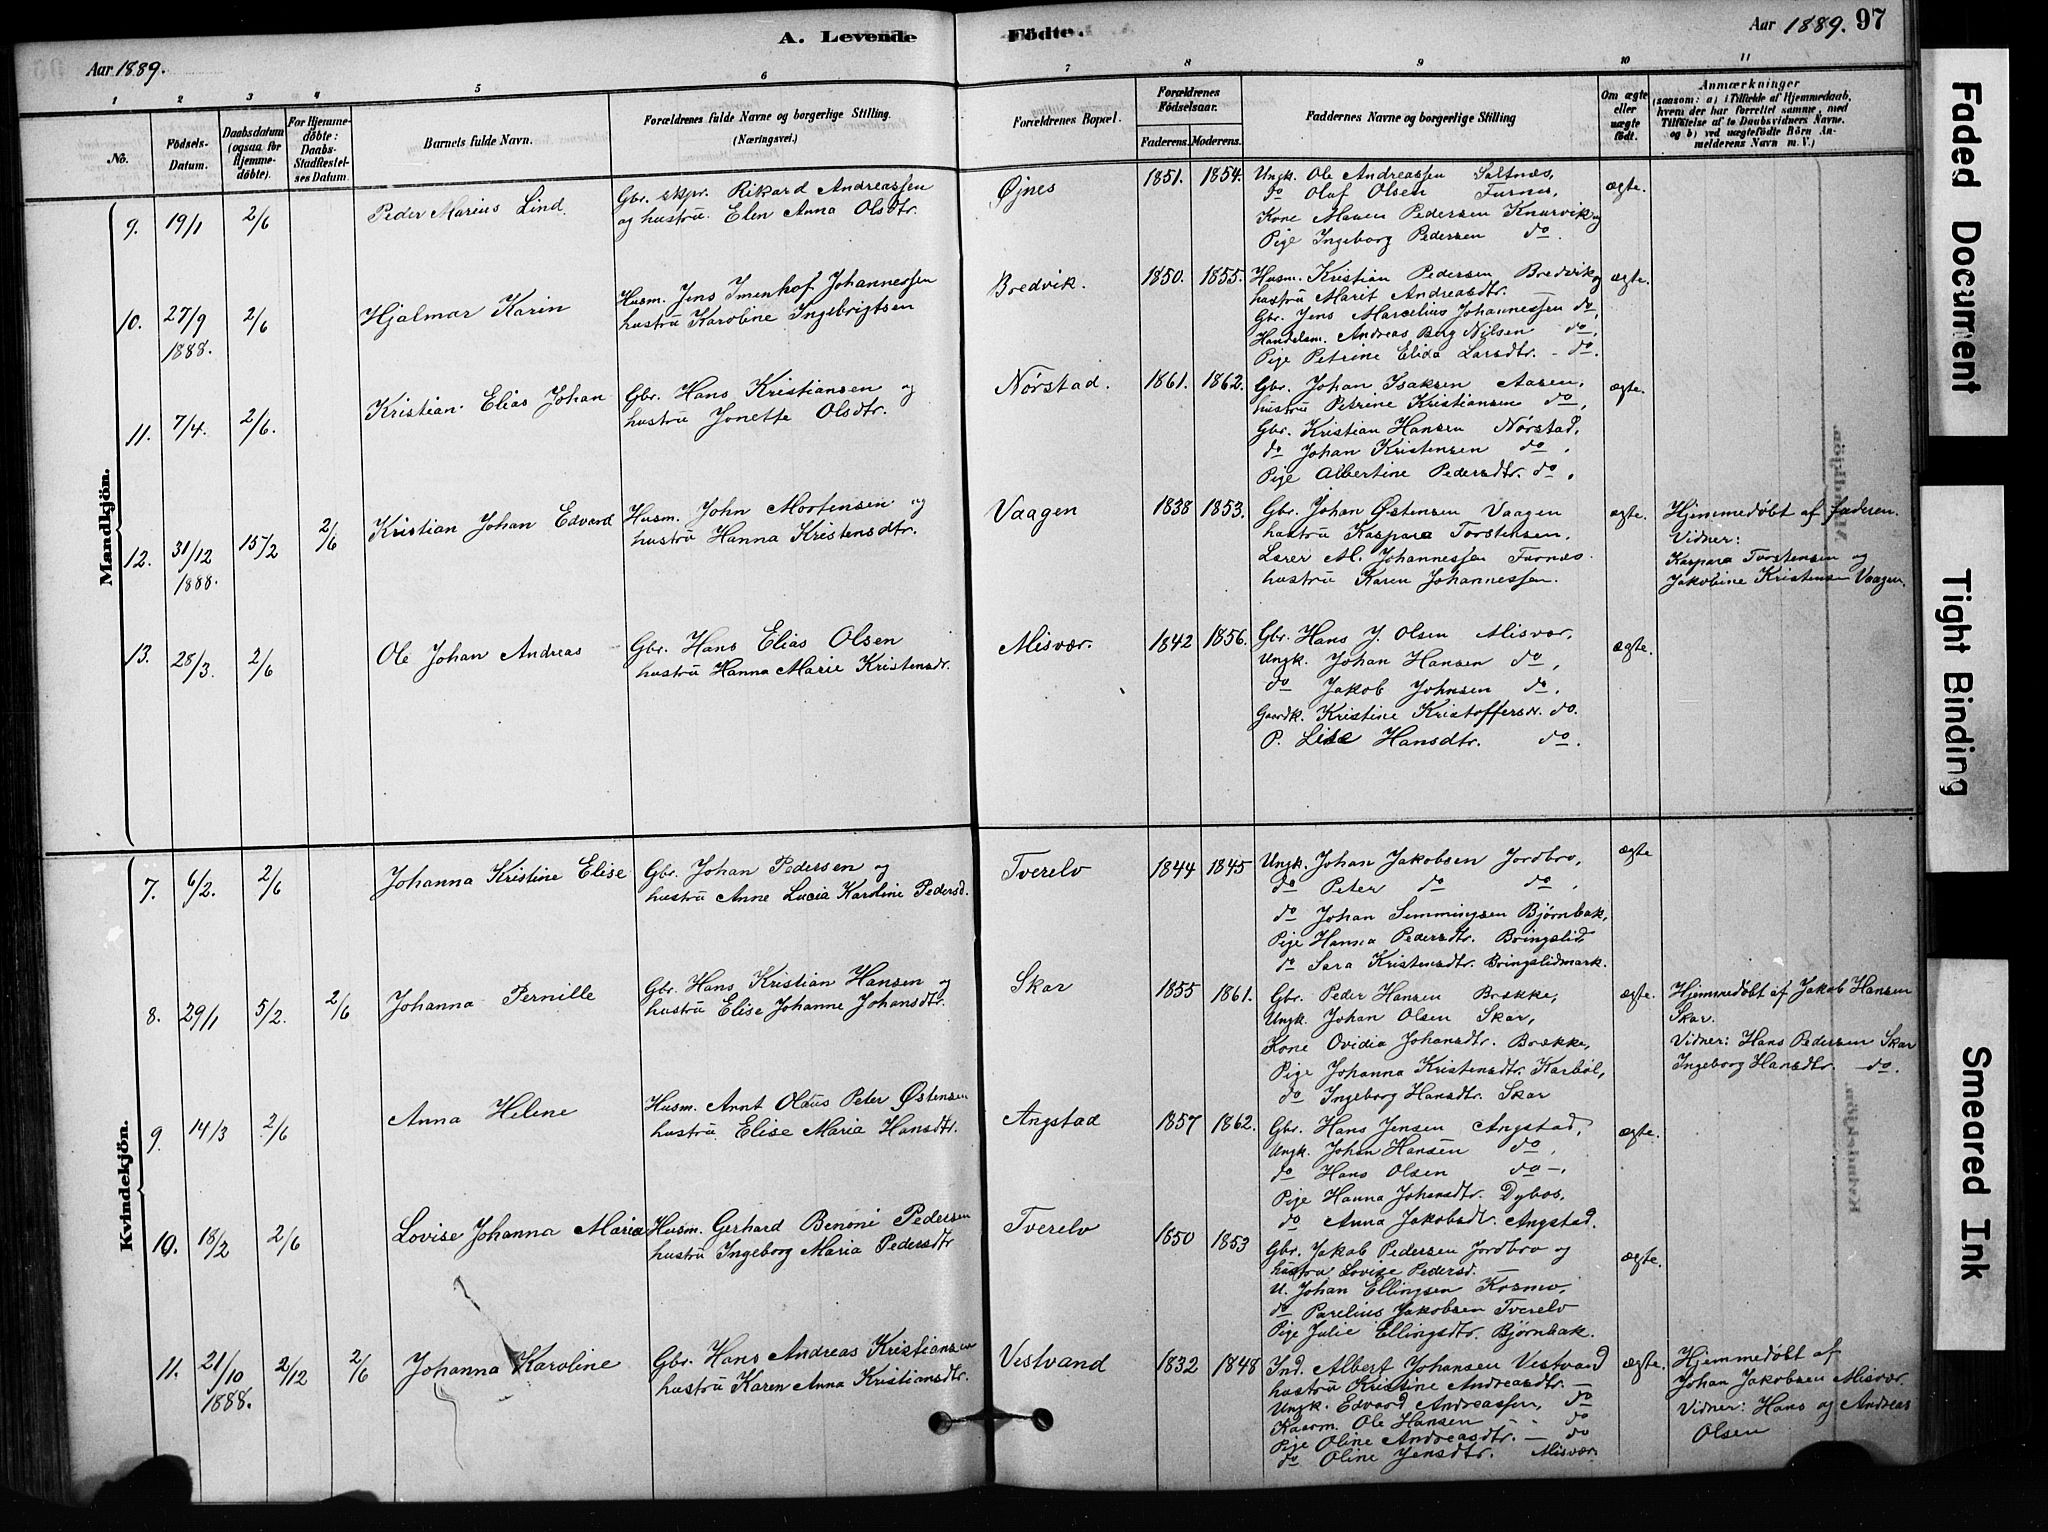 A. Levende Födte.
Aar 1889.
Aar 1889. 97
1 2 3 4 5 6 7 8 9 10 11
No.
Födsels-Datum.
Daabsdatum (ogsaa for Hjemmedöbte).
For Hjemmedöbte: Daabs-Stadfæstelses Datum.
Barnets fulde Navn.
Forældrenes fulde Navne og borgerlige Stilling. (Næringsvei.)
Forældrenes Bopæl.
Forældrenes Födselsaar.
Faderens. Moderens.
Faddernes Navne og borgerlige Stilling
Om ægte eller uægte födt.
Anmærkninger
(saasom: a) i Tilfælde af Hjemmedaab,
hvem der har forrettet samme, med
Tilföielse af to Daabsvidners Navne.
og b) ved uægtefödte Börn Anmelderens Navn m. V.)
Mandkjön.
9. 19/1 2/6 Peder Marius Lind.
Gbr. skpr. Rikard Andreassen
og hustru Elen Anna Olsdtr.
Øjnes 1851. 1854.
Ungk. Ole Andreassen Saltnæs,
do Oluf Olsen Furnes,
Kone Maren Pedersen Knarvik og
Pige Ingeborg Pedersen do.
ægte.
10. 27/9 1888. 2/6 Hjalmar Karin
Husm. Jens Imenhof Johannessen
hustru Karoline Ingebrigtsen
Bredvik. 1850. 1855.
Husm. Kristian Pedersen Bredvik og
hustru Marit Andreasdtr.
Gbr. Jens Marcelius Johannessen do,
Handelsm. Andreas Berg Nilsen do,
Pige Petrine Elida Larsdtr. - do.
ægte.
11. 7/4. 2/6. Kristian Elias Johan
Gbr. Hans Kristiansen og
hustru Jonette Olsdtr.
Nørstad. 1861. 1862.
Gbr. Johan Isaksen Aasen,
hustru Petrine Kristiansen do,
Gbr. Kristian Hansen Nørstad,
do Johan Kristensen do,
Pige Albertine Pedersdtr. do,
ægte.
12. 31/12 1888. 15/2 2/6 Kristian Johan Edvard
Husm. John Mortensen og
hustru Hanna Kristensdtr.
Vaagen 1838 1853.
Gbr. Johan Østensen Vaagen
hustru Kaspara Torstensen,
Lærer M. Johannessen Furnæs.
hustru Karen Johannessen.
ægte.
Hjemmedøbt af faderen.
Vidner:
Kaspara Torstensen og
Jakobine Kristensen Vaagen.
13. 28/3. 2/6 Ole Johan Andreas
Gbr. Hans Elias Olsen
hustru Hanna Marie Kristensdr.
Misvær. 1842 1856.
Gbr. Hans J. Olsen Misvær,
Ungk. Johan Hansen do,
do Jakob Johnsen do.
Gaardk. Kristine Kristoffersdr. do.
P. Lise Hansdtr. do.
ægte.
Kvindekjön.
7. 6/2. 2/6 Johanna Kristine Elise
Gbr. Johan Pedersen og
hustru Anne Lucia Karoline Pedersd.
Tverelv 1844 1845
Ungk. Johan Jakobsen Jordbro,
do Peter do do,
do Johan Simmingsen Bjørnbak,
Pige Hanna Pedersdtr. Bringslid
do Sara Kristensdtr. Bringslidmark.
ægte
8. 29/1 5/2. 2/6 Johanna Pernille
Gbr. Hans Kristian Hansen og
hustru Elise Johanne Johansdtr.
Skar 1855 1861.
Gbr. Peder Hansen Brække,
Ungk. Johan Olsen Skar,
Kone Ovidia Johansdtr. Brække,
Pige Johanna Kristensdtr. Karbøl,
do Ingeborg Hansdtr. Skar
ægte.
Hjemmedøbt af Jakob Hansen
Skar.
Vidner: Hans Pedersen Skar
Ingeborg Hansdtr. do.
9. 14/3 2/6 Anna Helene
Husm. Arnt Olaus Peter Østensen
hustru Elise Maria Hansdtr.
Angstad 1857 1862.
Gbr. Hans Jensen Angstad,
Ungk. Johan Hansen do,
do Hans Olsen do,
Pige Hanna Johansdtr. Dybos,
do Anna Jakobsdr. Angstad.
ægte.
10. 18/2 2/6 Lovise Johanna Maria
Husm. Gerhard Benoni Pedersen
hustru Ingeborg Maria Pedersdtr
Tverelv 1850 1853
Gbr. Jakob Pedersen Jordbro og
hustru Lovise Pedersd.
U. Johan Ellingsen Kosmo,
do Parelius Jakobsen Tverelv
Pige Julie Ellingsdtr. Bjørnbak.
ægte.
11. 21/10 1888. 2/12 2/6 Johanna Karoline
Gbr. Hans Andreas Kristiansen
hustru Karen Anna Kristiansdtr.
Vestvand 1832 1848
Ind. Albert Johansen Vestvand
hustru Kristine Andreasdtr. —
Ungk. Edvard Andreassen, do
Kaarm. Ole Hansen - - do
Pige Oline Andreasdtr. — do
do Oline Jensdtr. Misvær.
ægte.
Hjemmedøbt af
Johan Jakobsen Misvær.
Vidner: Hans og Andreas
Olsen
Faded Document
Tight Binding
Smeared Ink